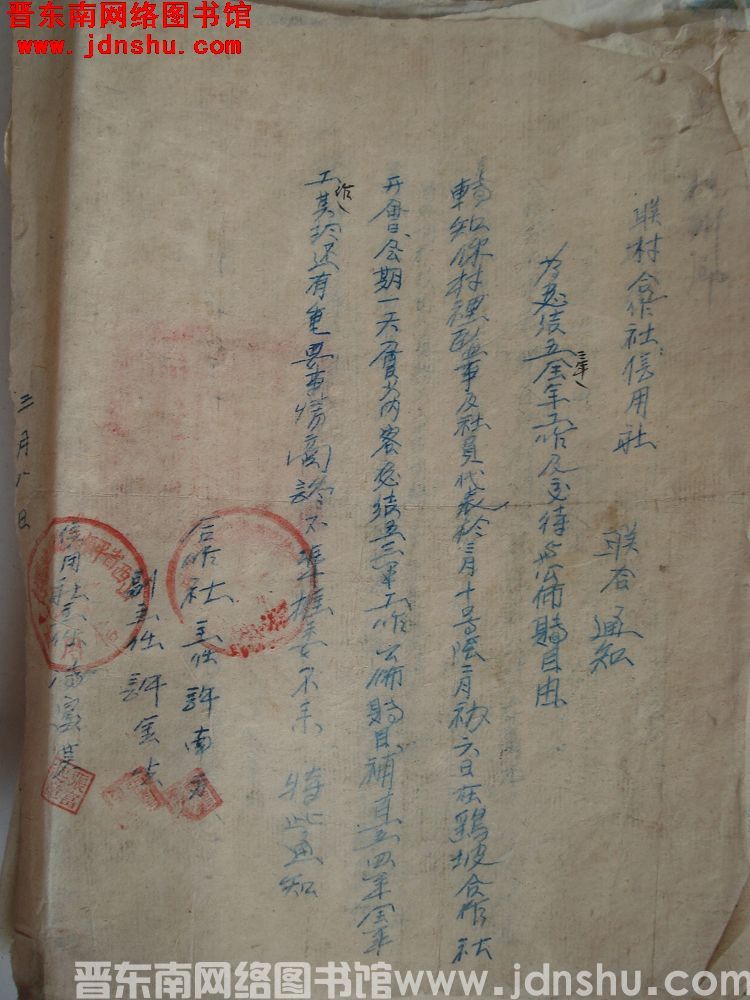 晋东南网络图书馆
www.jdnshu.com
联村合作社信用社 联合通知
为总结五三年全年工作及交待与公佈賬目由
转知你村理监事及社員代表於三月十号陰二月初六日在鷄坡合作社
开會 会期一天 會议内容总结五三年工作 公佈賬目 五四年全年
工作 其於还有重要事情商討 不 不来 特此通知
合作社主任 許南
副主任 許金
信用社主任
三月八日
晋东南网络图书馆www.jdnshu.com